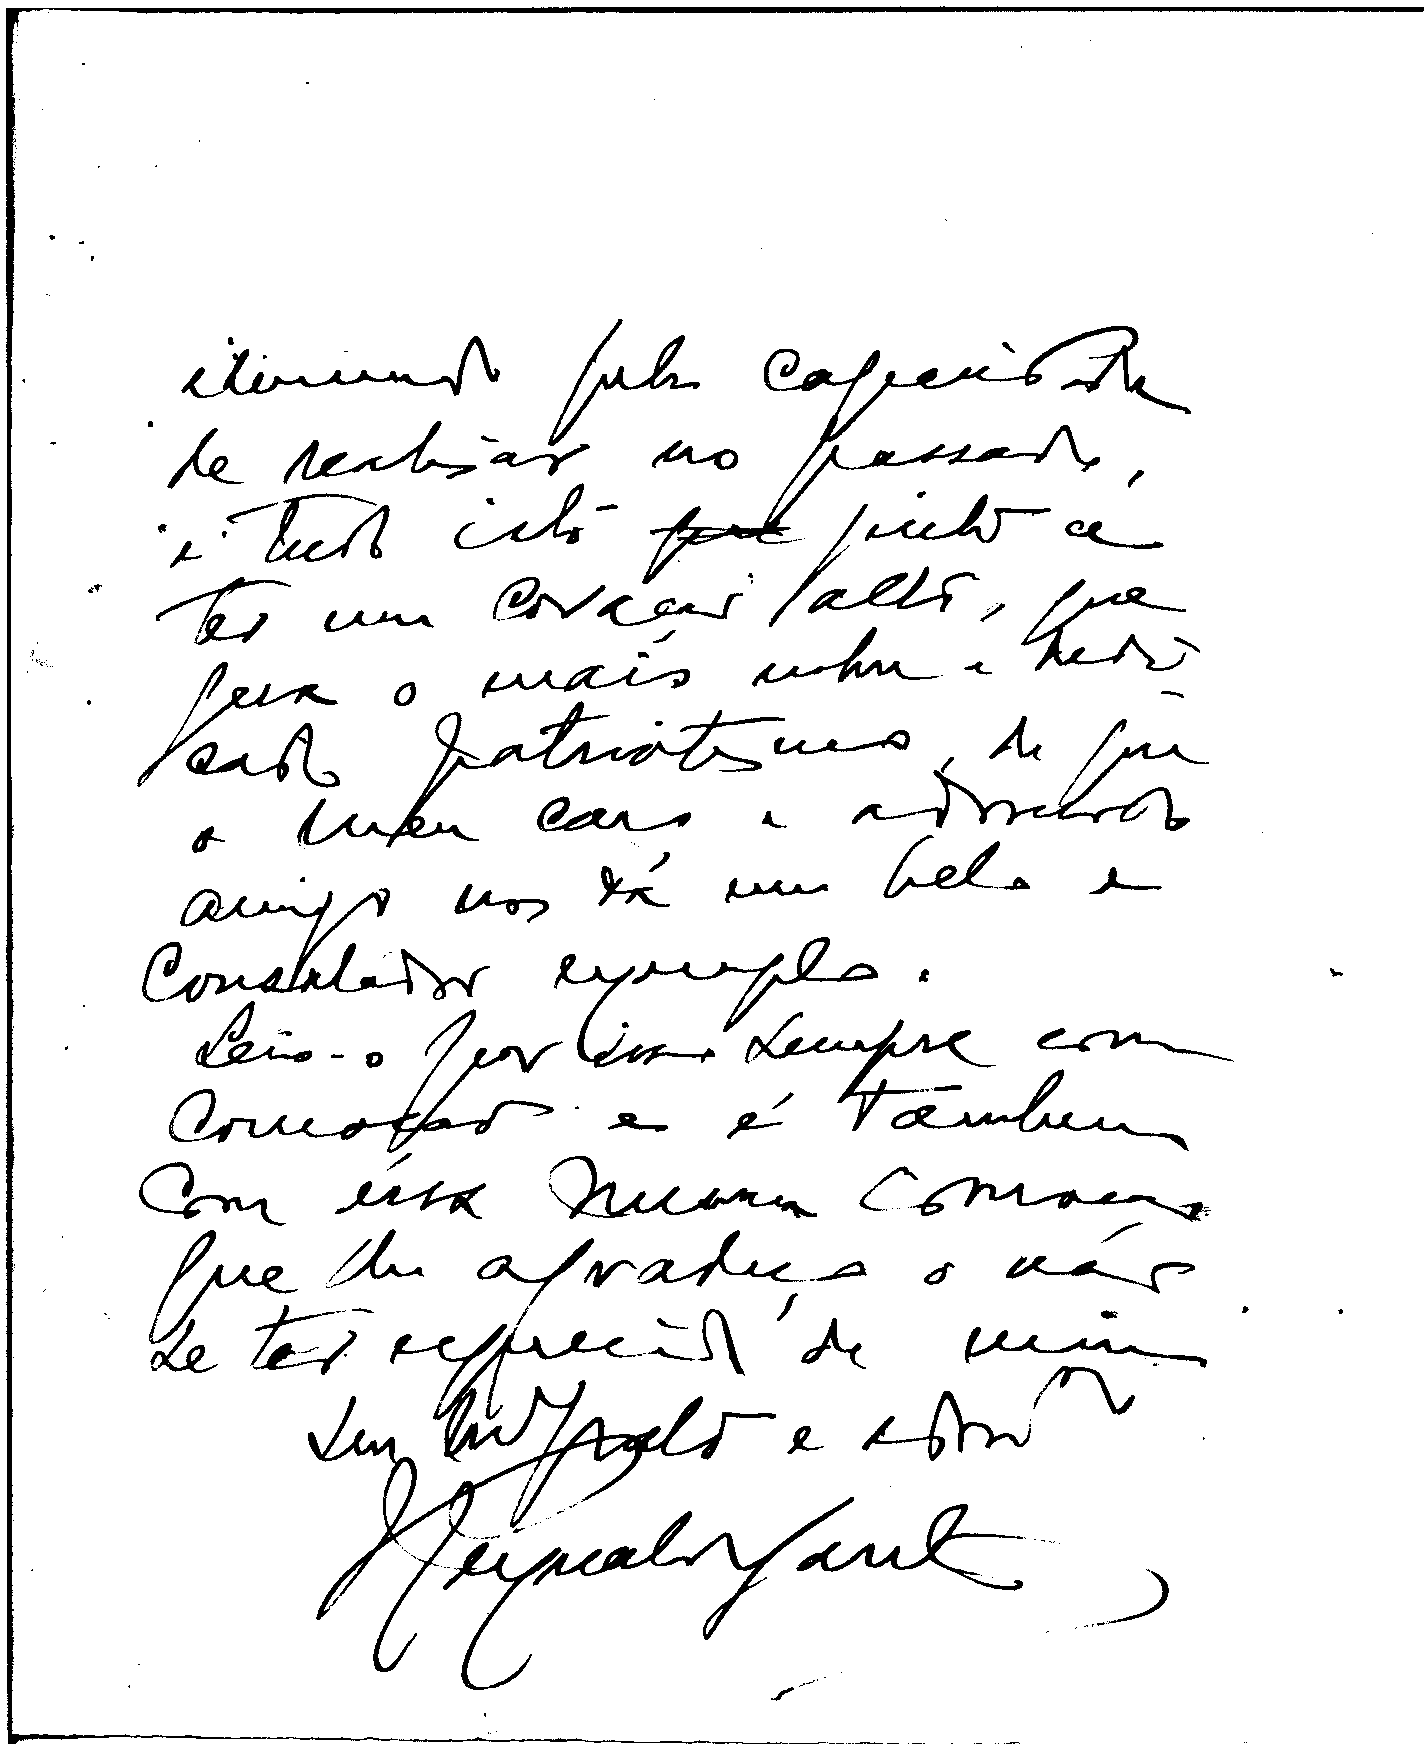 pela capacidade
de realisar no passado,
e tudo isto junto a
ter um coração alto, que
para o mais nobre e dedi-
cado patriotismo, de que
o meu caro e admirado
amigo nos dá um belo e
consolador exemplo.
Leio-o por isso sempre com
comoção e é tambem
com éssa mesma comoção
que lhe agradeço o não
se ter esquecido de mim
Seu grato e